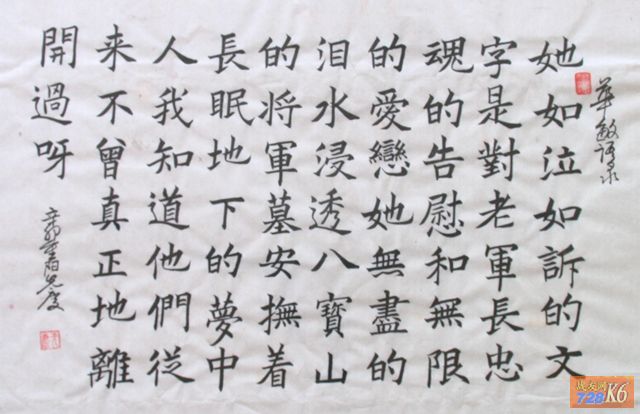 華敏语录
她如泣如訴的文
字是對老軍長忠
魂的告慰和無限
的愛戀她無盡的
泪水浸透八寶山
的将軍墓安撫着
長眠地下的夢中
人我知道他們從
来不曾真正地離
開過呀
辛卯重阳
战友网
728K6